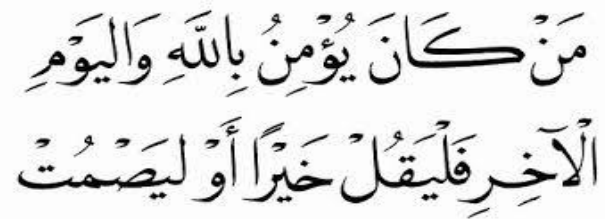 مَنْ كَانَ يُؤْمِنُ بِاللَّهِ وَالْيَوْمِ
الْآخِرِ فَلْيَقُلْ خَيْرًا أَوْ لِيَصْمُتْ